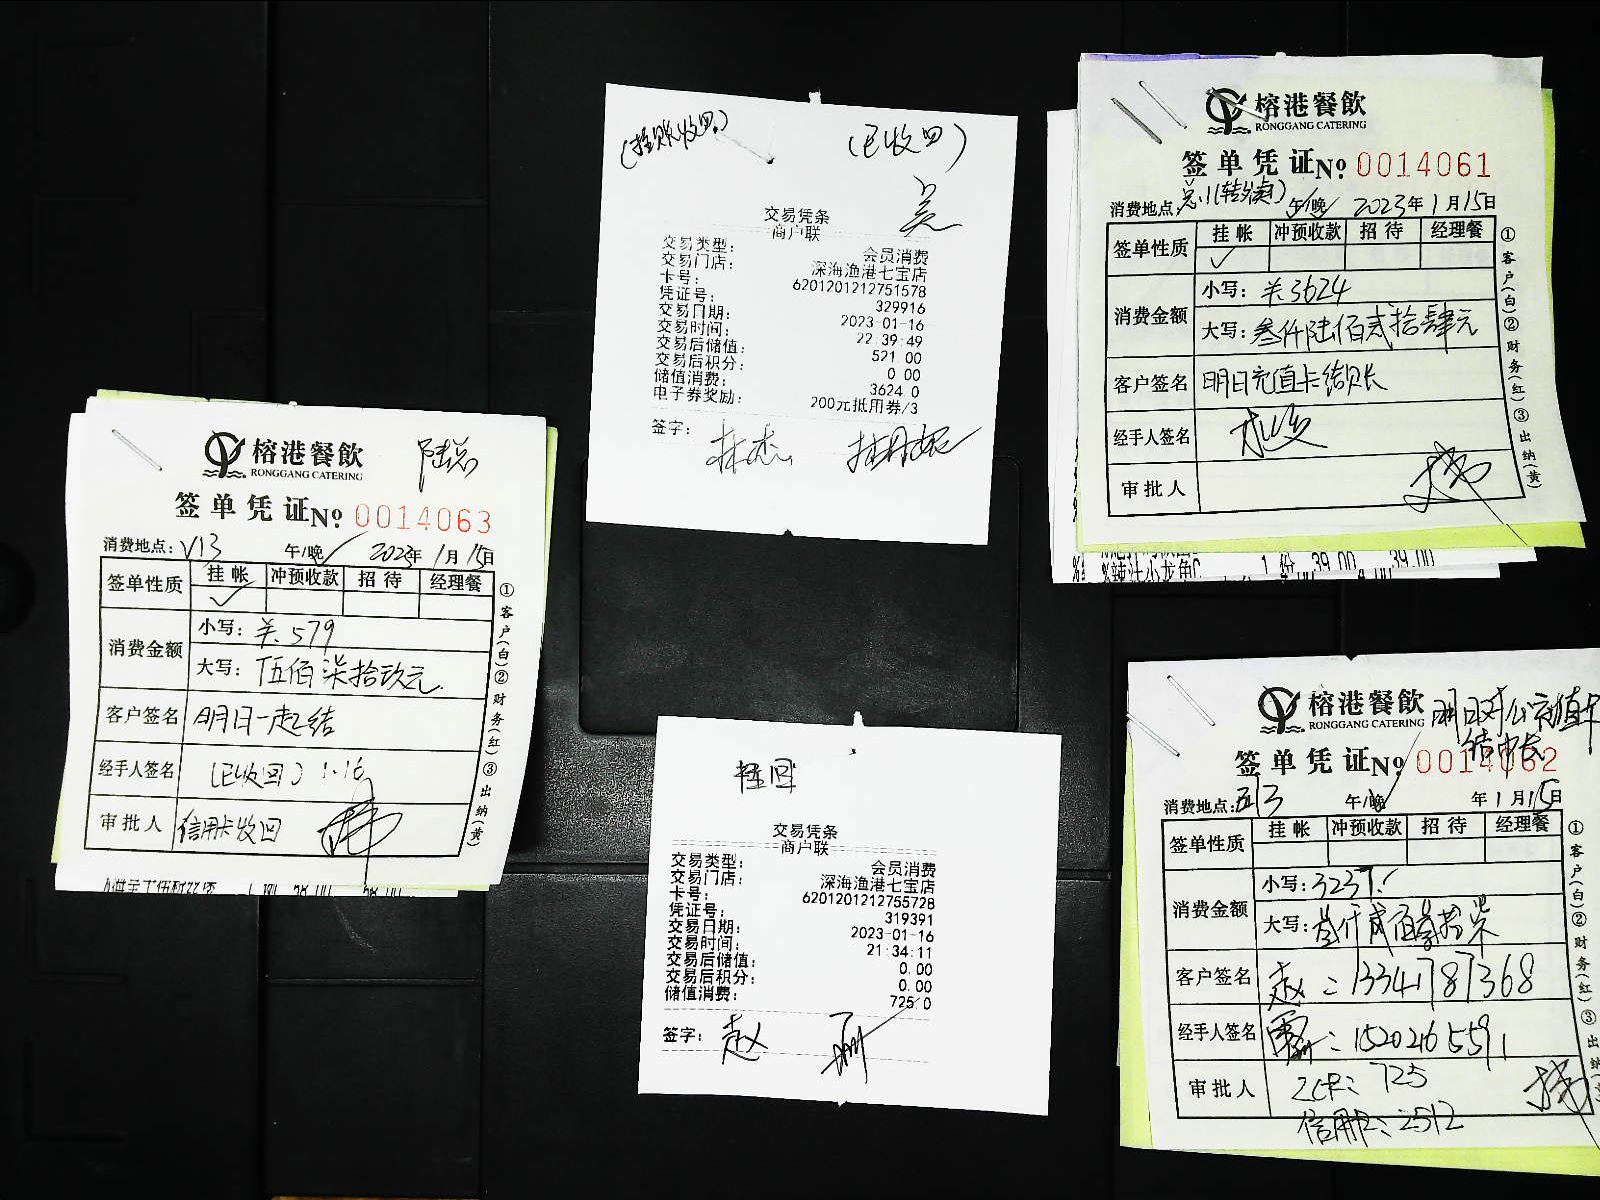 榕港餐飲
RONGGANG CATERING
陆总
签单凭证№ 0014063
消费地点: V13 午/晚 2023年1月15日
签单性质 挂帐 冲预收款 招待 经理餐
✓
消费金额 小写: 579
大写: 伍佰柒拾玖元
客户签名 明日一起结
经手人签名 (已收回) 1.16
审批人 信用卡收回
①客户(白)②财务(红)③出纳(黄)
(挂账收回) (已收回)
交易凭条
商户联
交易类型: 会员消费
交易门店: 深海渔港七宝店
卡号: 6201201212751578
凭证号: 329916
交易日期: 2023-01-16
交易时间: 22:39:49
交易后储值: 521.00
交易后积分: 0.00
储值消费: 3624.0
电子券奖励: 200元抵用券/3
签字: 林杰
挂回
交易凭条
商户联
交易类型: 会员消费
交易门店: 深海渔港七宝店
卡号: 6201201212755728
凭证号: 319391
交易日期: 2023-01-16
交易时间: 21:34:11
交易后储值: 0.00
交易后积分: 0.00
储值消费: 725.0
签字: 赵
榕港餐飲
RONGGANG CATERING
签单凭证№ 0014061
消费地点: 午/晚 2023年1月15日
签单性质 挂帐 冲预收款 招待 经理餐
✓
消费金额 小写: 3624
大写: 叁仟陆佰贰拾肆元
客户签名 明日充值卡结账
经手人签名
审批人
①客户(白)②财务(红)③出纳(黄)
1份 39.00 39.00
榕港餐飲
RONGGANG CATERING
明日对公充值卡
签单凭证№ 0014062
消费地点: 午/晚 年1月15日
签单性质 挂帐 冲预收款 招待 经理餐
消费金额 小写: 3237.
大写: 叁仟贰佰叁拾柒
客户签名 赵: 13341787368
经手人签名 : 15202165591
审批人 725
信用卡: 2512
①客户(白)②财务(红)③出纳